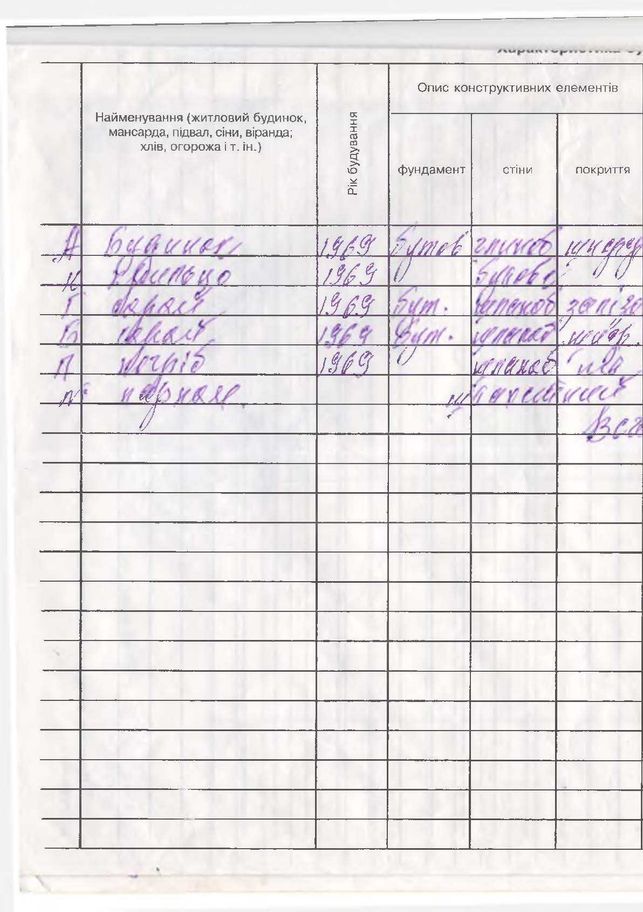 Характеристика бу
Найменування (житловий будинок,
мансарда, підвал, сіни, віранда;
хлів, огорожа і т. ін.)
Рік будування
Опис конструктивних елементів
фундамент стіни покриття
А Будинок 1969 Бутов глиноб шифер
1969 Бутово
Г сарай 1969 Бут. шлакоб залізо
Б сарай 1969 Бут. шлакоб
П погріб 1969 шлакоб
паркан
Все